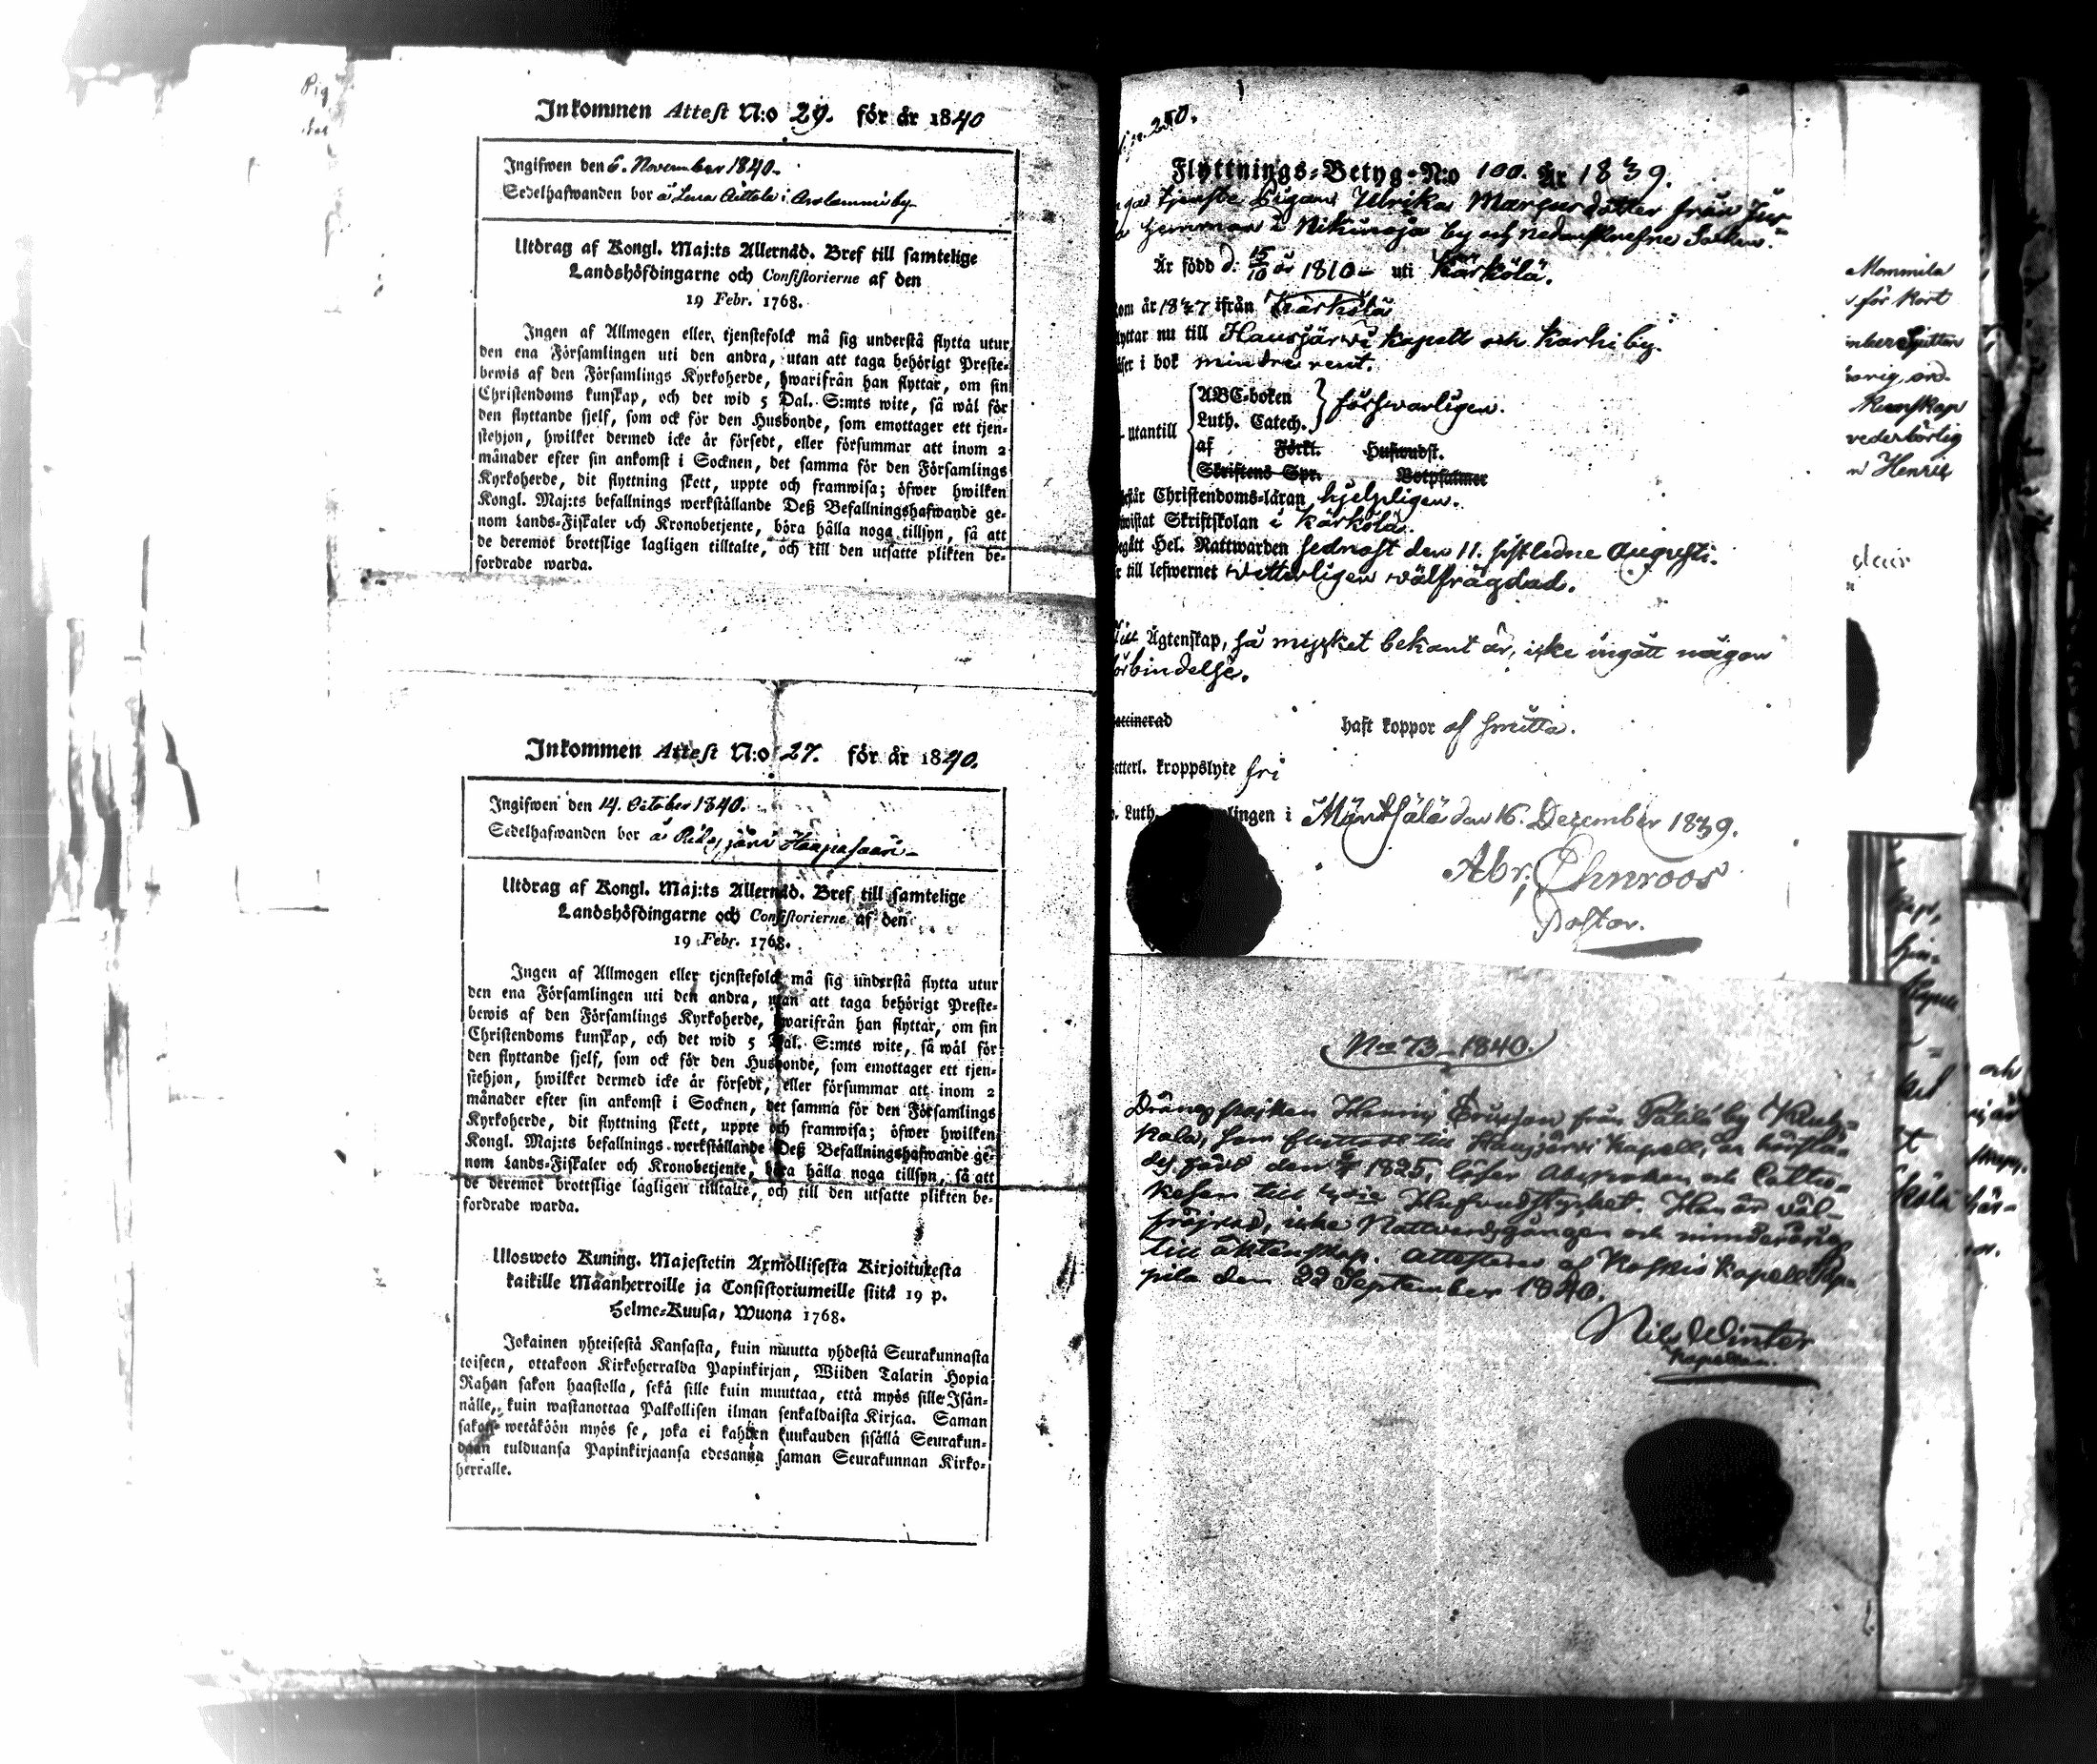 Inkommen Attest N:o 29. för år 1840
Ingifwen den 6. November 1840.
Sedelhafwanden bor å Lena Aittola i by
Utdrag af Kongl. Maj:ts Allernåd. Bref till samtelige
Landshöfdingarne och Consistorierne af den
19 Febr. 1768.
Ingen af Allmogen eller tjenstefolck må sig understå flytta utur
den ena Församlingen uti den andra, utan att taga behörigt Preste-
bewis af den Församlings Kyrkoherde, hwarifrån han flyttar, om sin
Christendoms kunskap, och det wid 5 Dal. S:mts wite, så wäl för
den flyttande sjelf, som ock för den Husbonde, som emottager ett tjen-
stehjon, hwilket dermed icke är försedt, eller försummar att inom 2
månader efter sin ankomst i Socknen, det samma för den Församlings
Kyrkoherde, dit flyttning skett, uppte och framwisa; öfwer hwilken
Kongl. Maj:ts befallnings werkställande Deß Befallningshafwande ge-
nom Lands-Fiskaler och Kronobetjente, böra hålla noga tillsyn, så att
de deremot brottslige lagligen tilltalte, och till den utsatte plikten be-
fordrade warda.
Inkommen Attest N:o 27. för år 1840.
Ingifwen den 14. October 1840.
Sedelhafwanden bor å Haapasaari
Utdrag af Kongl. Maj:ts Allernåd. Bref till samtelige
Landshöfdingarne och Consistorierne af den
19 Febr. 1768.
Ingen af Allmogen eller tjenstefolck må sig understå flytta utur
den ena Församlingen uti den andra, utan att taga behörigt Preste-
bewis af den Församlings Kyrkoherde, hwarifrån han flyttar, om sin
Christendoms kunskap, och det wid 5 Dal. S:mts wite, så wäl för
den flyttande sjelf, som ock för den Husbonde, som emottager ett tjen-
stehjon, hwilket dermed icke är försedt, eller försummar att inom 2
månader efter sin ankomst i Socknen, det samma för den Församlings
Kyrkoherde, dit flyttning skett, uppte och framwisa; öfwer hwilken
Kongl. Maj:ts befallnings werkställande Deß Befallningshafwande ge-
nom Lands-Fiskaler och Kronobetjente, böra hålla noga tillsyn, så att
de deremot brottslige lagligen tilltalte, och till den utsatte plikten be-
fordrade warda.
Ulosweto Kuning. Majestetin Armollisesta Kirjoituxesta
kaikille Maanherroille ja Consistoriumeille siitä 19 p.
Helme-Kuusa, Wuona 1768.
Jokainen yhteisestä Kansasta, kuin muutta yhdestä Seurakunnasta
toiseen, ottakoon Kirkoherralda Papinkirjan, Wiiden Talarin Hopia
Rahan sakon haastolla, sekä sille kuin muuttaa, että myös sille Isän-
nälle, kuin wastanottaa Palkollisen ilman senkaldaista Kirjaa. Saman
sakon wetäköön myös se, joka ei kahden kuukauden sisällä Seurakun-
daan tulduansa Papinkirjaansa edesanna saman Seurakunnan Kirko-
herralle.
Flyttnings-Betyg N:o 100. År 1839.
tjenste Pigan Ulrika Marcusdotter från
hemman i Nikinoja by och nedanskrefne Socken.
Är född d: 15/10 år 1810 uti Kärkölä.
om år 1837 ifrån Kärkölä
lyttar nu till Hausjärwi kapell och Karhi by.
äser i bok mindre rent.
utantill
ABC-boken
Luth. Catech.
försvarligen.
af Förkl. Hufwudst.
Skriftens Spr. Botpsalmer
Christendoms-läran hjelpligen.
wistat Skriftskolan i Kärkölä.
egått Hel. Nattwarden sednast den 11. sistledne Augusti.
till lefwernet wetterligen wälfrägdad.
Ägtenskap, så mycket bekant är, icke ingått någon
örbindelse.
accinerad haft koppor af smitta.
etterl. kroppslyte fri
Luth. lingen i Mäntsälä den 16. December 1839.
Abr. Ehnroos
Pastor.
N:o 73 1840.
Drängpojken Henric Ericsson från by
kala, som flyttar till Hausjärvi kapell, är
den 1825, läser Abcboken och Cateche-
kesen till Hufvudstycket. Han är väl-
fräjdad, icke Nattvardsgången och minderårig
till äktenskap. Attesterar af Koskis kapell
pila den 22 September 1840.
Nils Winter
kapellan.
Mommila
för kort
Kunskap
vederbörlig
Henric